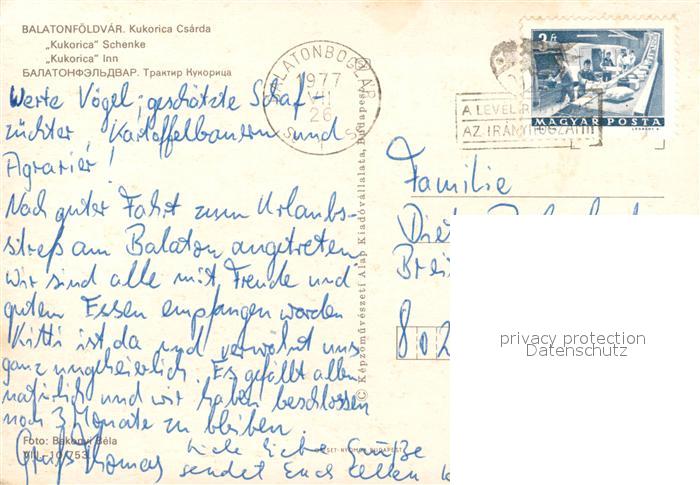 BALATONFÖLDVÁR. Kukorica Csárda
„Kukorica" Schenke
„Kukorica" Inn
БАЛАТОНФЭЛЬДВАР. Трактир Кукорица
BALATONBOGLÁR
1977
VII
26
3 ft
MAGYAR POSTA
A LEVÉL
AZ IRÁNYÍTÓSZÁM!!!
Werte Vögel; geschätzte Schaf-
züchter, Kartoffelbauern und
Agrarier!
Nach guter Fahrt zum Urlaubs-
streß am Balaton angetreten
wir sind alle mit Freude und
gutem Essen empfangen worden
Kitti ist da und verwöhnt uns
ganz ungeheuerlich. Es gefällt allen
natürlich und wir haben beschlossen
noch 3 Monate zu bleiben.
Gruß Thomas
liebe Grüße
sendet Euch allen
Familie
802
© Képzőművészeti Alap Kiadóvállalata, Budapest
Foto: Bakonyi Béla
OFFSET-NYOMDA BUDAPEST
privacy protection
Datenschutz